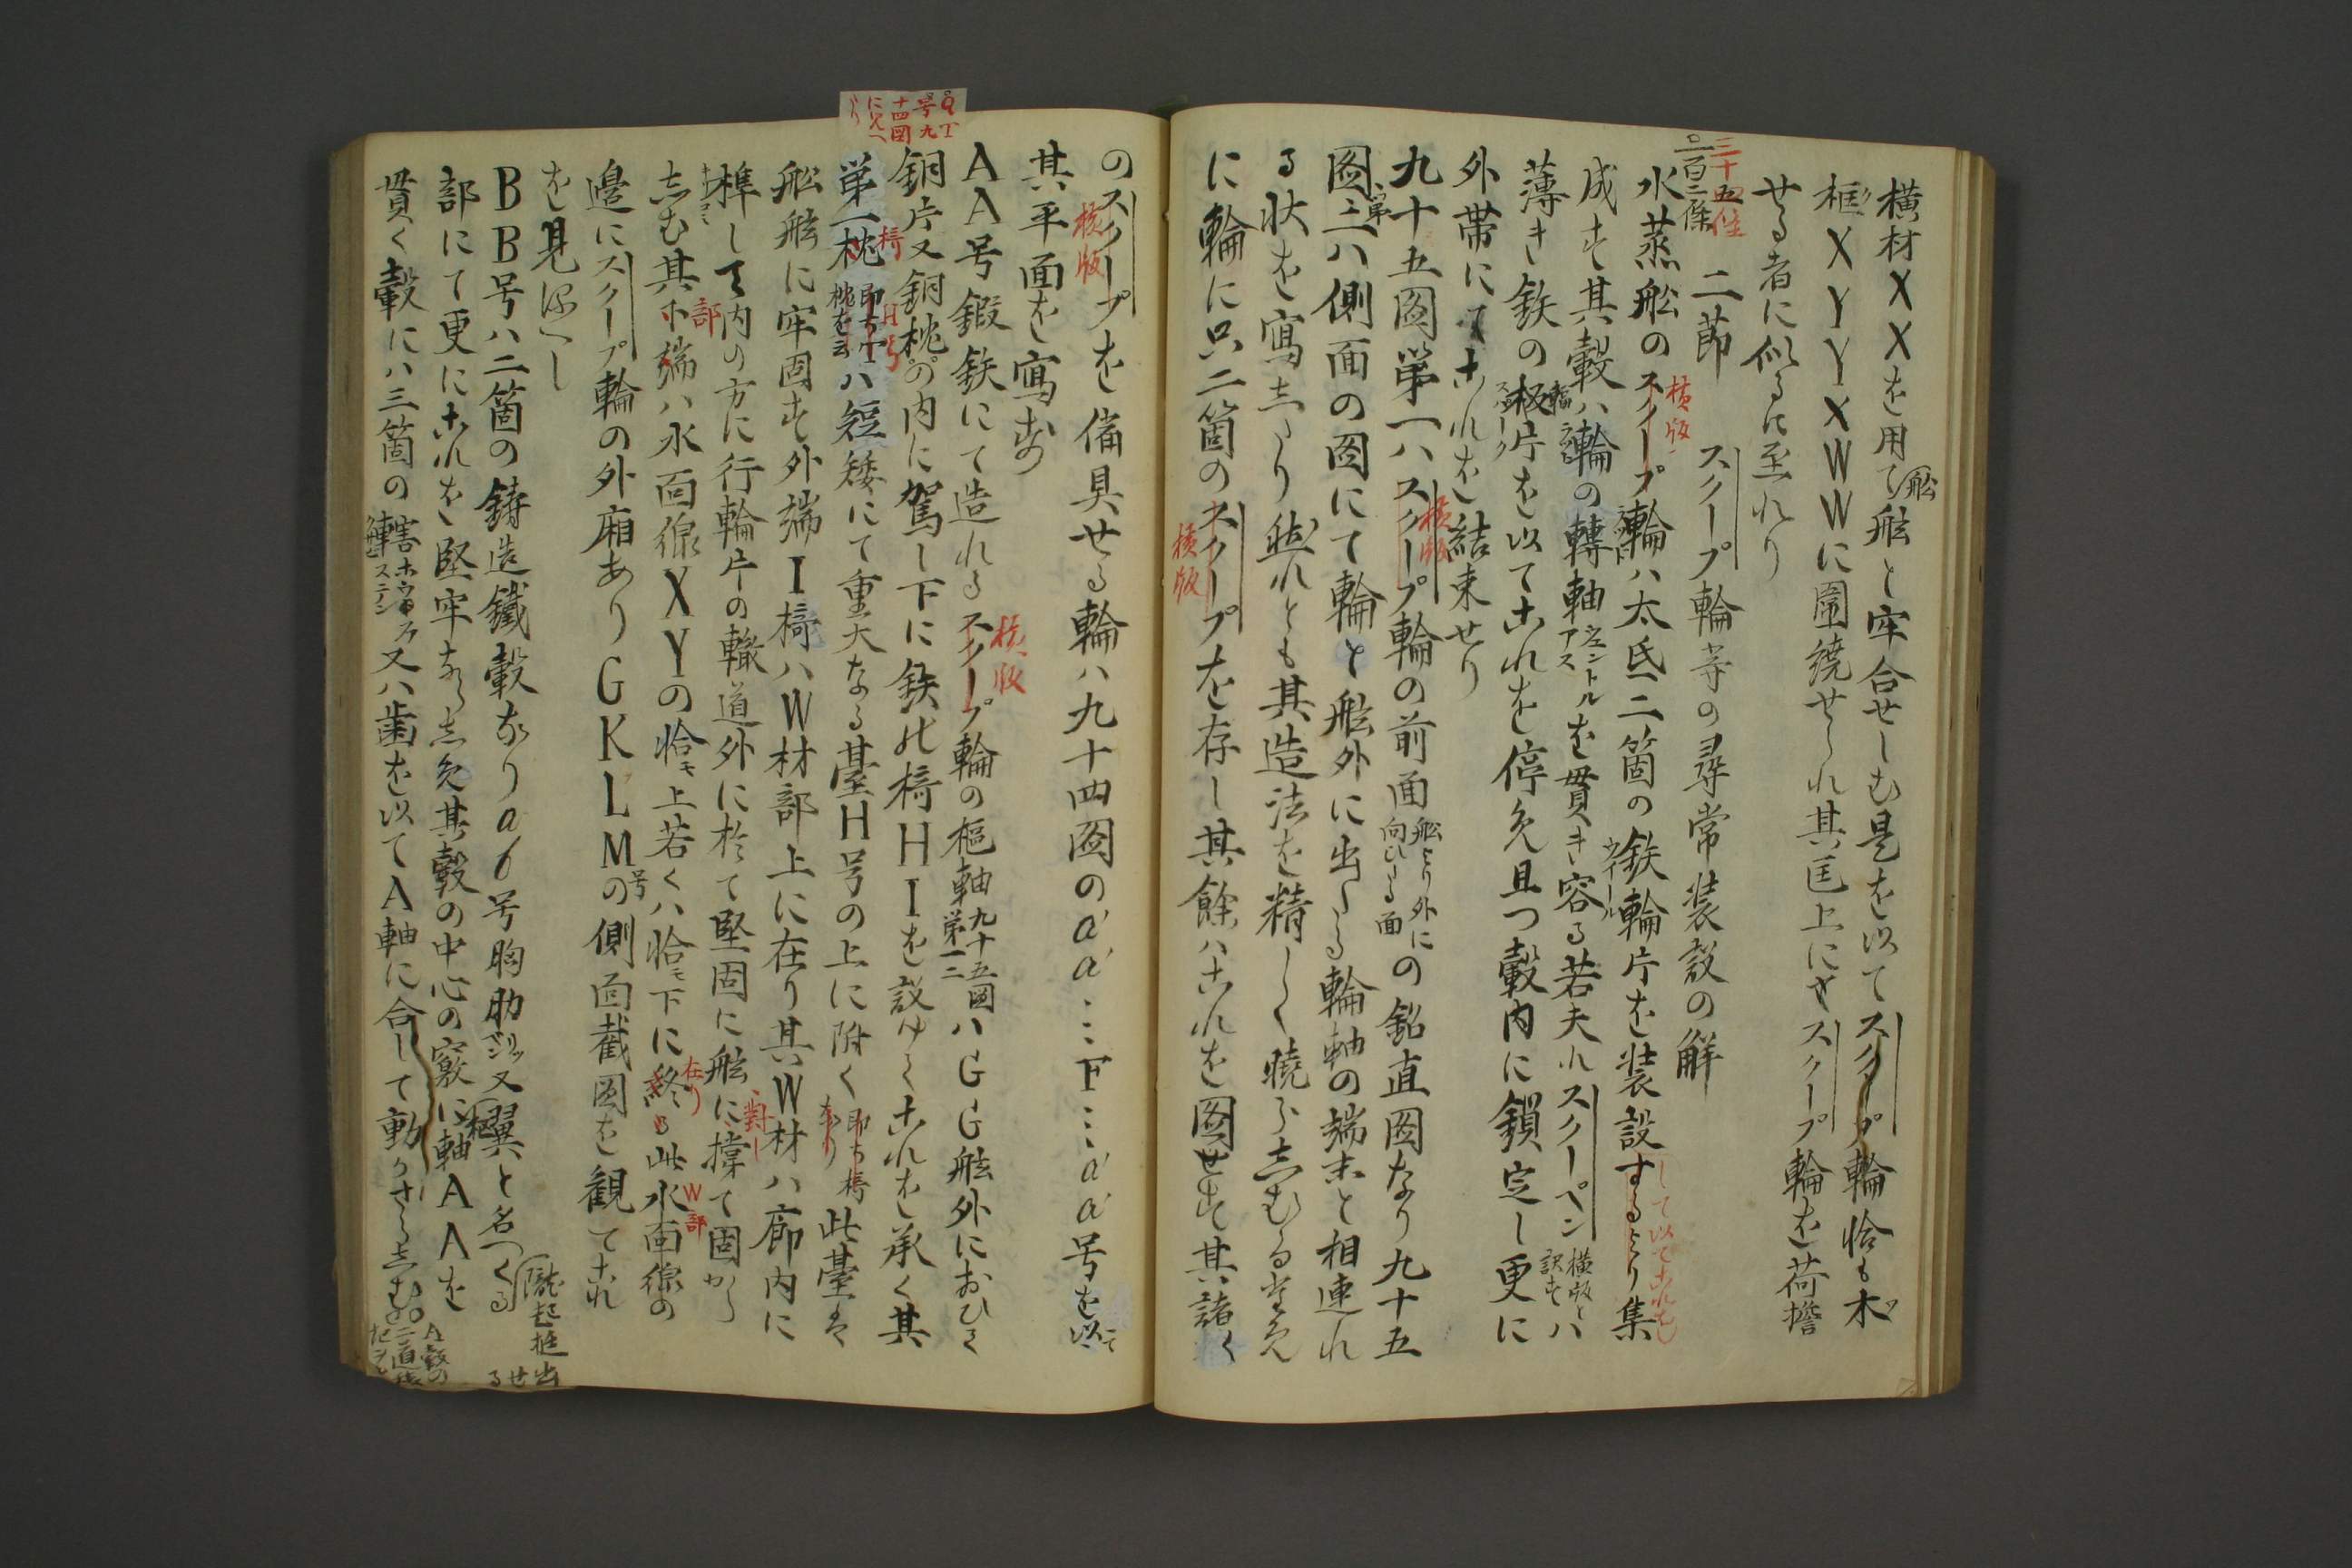 横材XXを用て舩舷と牢合せしむ是を以てスクープ輪恰も木
框XYYXWWに圍繞せられ其匡上にてスクープ輪を荷擔
せる者に似るに至れり
三十五
百二條 二節 スクープ輪等の尋常装設の解
水蒸舩のスクープ輪ハ太氐二箇の鉄輪片を装設するより集
横版
して以てこれを
成す其轂ハ輪の轉軸アスを貫き容る若夫れスクーペン横版とハ訳す
薄き鉄の板片を以てこれを停め且つ轂内に鎖定し更に
外帯にてこれを結束せり
九十五図第一ハスクープ輪の前面舩より外に向ひたる面の銘直図なり九十五
横版
図第二ハ側面の図にて輪と舷外に出たる輪軸の端末と相連れ
る状を寫したり然れとも其造法を精しく曉らしむる為め
に輪に只二箇のスクープを存し其餘ハこれを図せす其諸く
横版
のスクープを備具せる輪ハ九十四図のa'a'…F…a'a'号を以て
横版
其平面を寫す
AA号鍜鉄にて造れるスクープ輪の樞軸九十五図第一二ハGG舷外におひて
横版
銅片又銅枕の内に駕し下に鉄の椅HIを設けてこれを承く其
第一椅ハ短矮にて重大なる臺H号の上に附く即ち椅なり此臺を
H号
舩舷に牢固す外端I椅ハW材部上に在り其W材ハ廊内に
榫して内の方に行輪片の轍道外に於て堅固に舷に撑て固から
對し
しむ其端ハ水面線XYの恰モ上若くハ恰モ下に終る此水面線の
部
在り
W部
邊にスクープ輪の外廂ありGKLM号の側面截図を観てこれ
を見るへし
BB号ハ二箇の鋳造鐵轂なりab号胸肋又翼と名つくる
隴起挺出せる
部にて更にこれを堅牢ならしめ其轂の中心の竅に軸AAを
貫く轂にハ三箇の轄又ハ歯を以てA軸に合して動かさらしむ